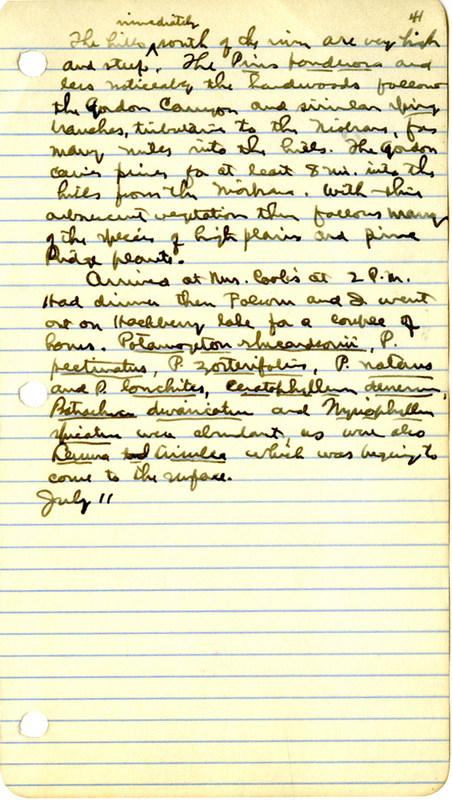 41
immediately
The hills ^ south of the river are very high
and steep. The Pinus ponderosa and
less noticeably the hardwoods follow
the Gordon Canyon and similar spring
branches, tributaries to the Niobrara, for
many miles into the hills. The Gordon
carries pines for at least 8 mi. into the
hills from the Niobrara. With this
arborescent vegetation then follows many
of the species of high plains and pine
Ridge plants.
Arrived at Mrs. Cobb's at 2 P.M.
Had dinner then Folsom and I went
out on Hackberry lake for a couple of
hours. Potamogeton richardsonii, P.
pectinatus, P. zosterifolius, P. natans
and P. lonchites, Ceratophyllum demersum,
Batrachium divaricatum and Myriophyllum
spicatum were abundant, as were also
Lemna trisulca which was beginning to
come to the surface.
July 11